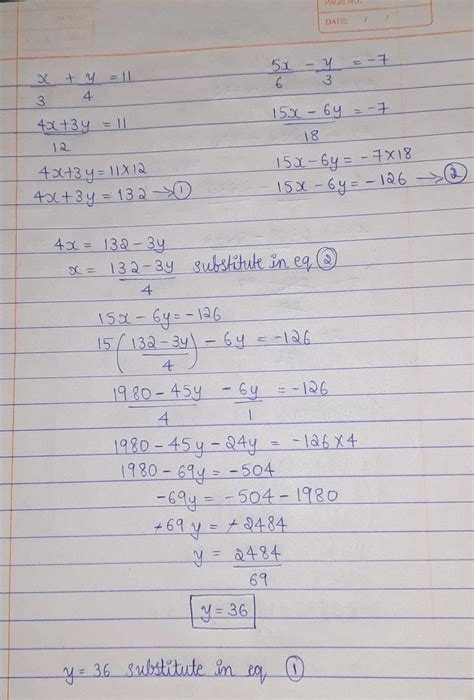 PAGE NO.
DATE: / /
x/3 + y/4 = 11
4x+3y/12 = 11
4x+3y = 11×12
4x+3y = 132 → ①
5x/6 - y/3 = -7
15x - 6y/18 = -7
15x - 6y = -7×18
15x - 6y = -126 → ②
4x = 132 - 3y
x = 132 - 3y/4 substitute in eq ②
15x - 6y = -126
15(132 - 3y/4) - 6y = -126
1980 - 45y/4 - 6y/1 = -126
1980 - 45y - 24y = -126×4
1980 - 69y = -504
-69y = -504 - 1980
+69y = +2484
y = 2484/69
y = 36
y = 36 substitute in eq ①